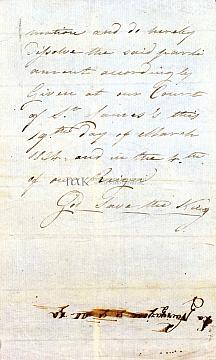 mation and do hereby
dissolve the said parli
ament accordingly
Given at our Court
of St. James's this
19th day of March
and in the 4th
of our Reign
God Save the King